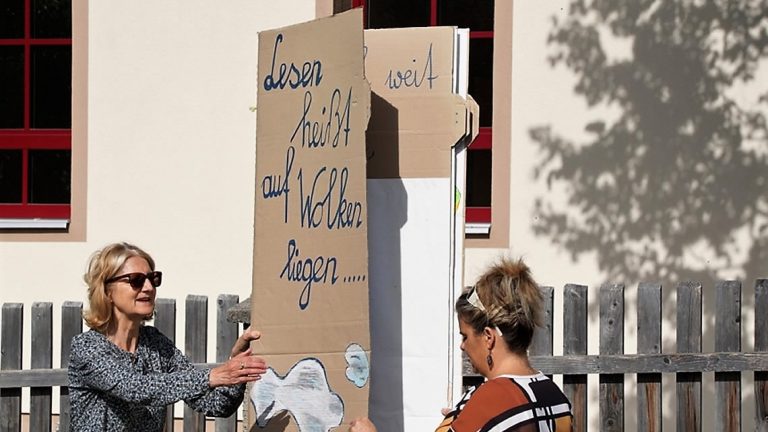 Lesen
heißt
auf Wolken
liegen.....
weit